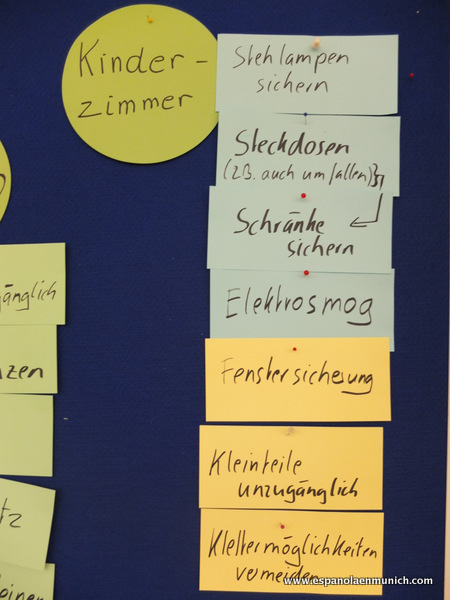 Kinder-
zimmer
Stehlampen
sichern
Steckdosen
(zB. auch umfallen)
Schränke
sichern
Elektrosmog
Fenstersicherung
Kleinteile
unzugänglich
Klettermöglichkeiten
vermeiden
änglich
zen
tz
www.espanolaenmunich.com